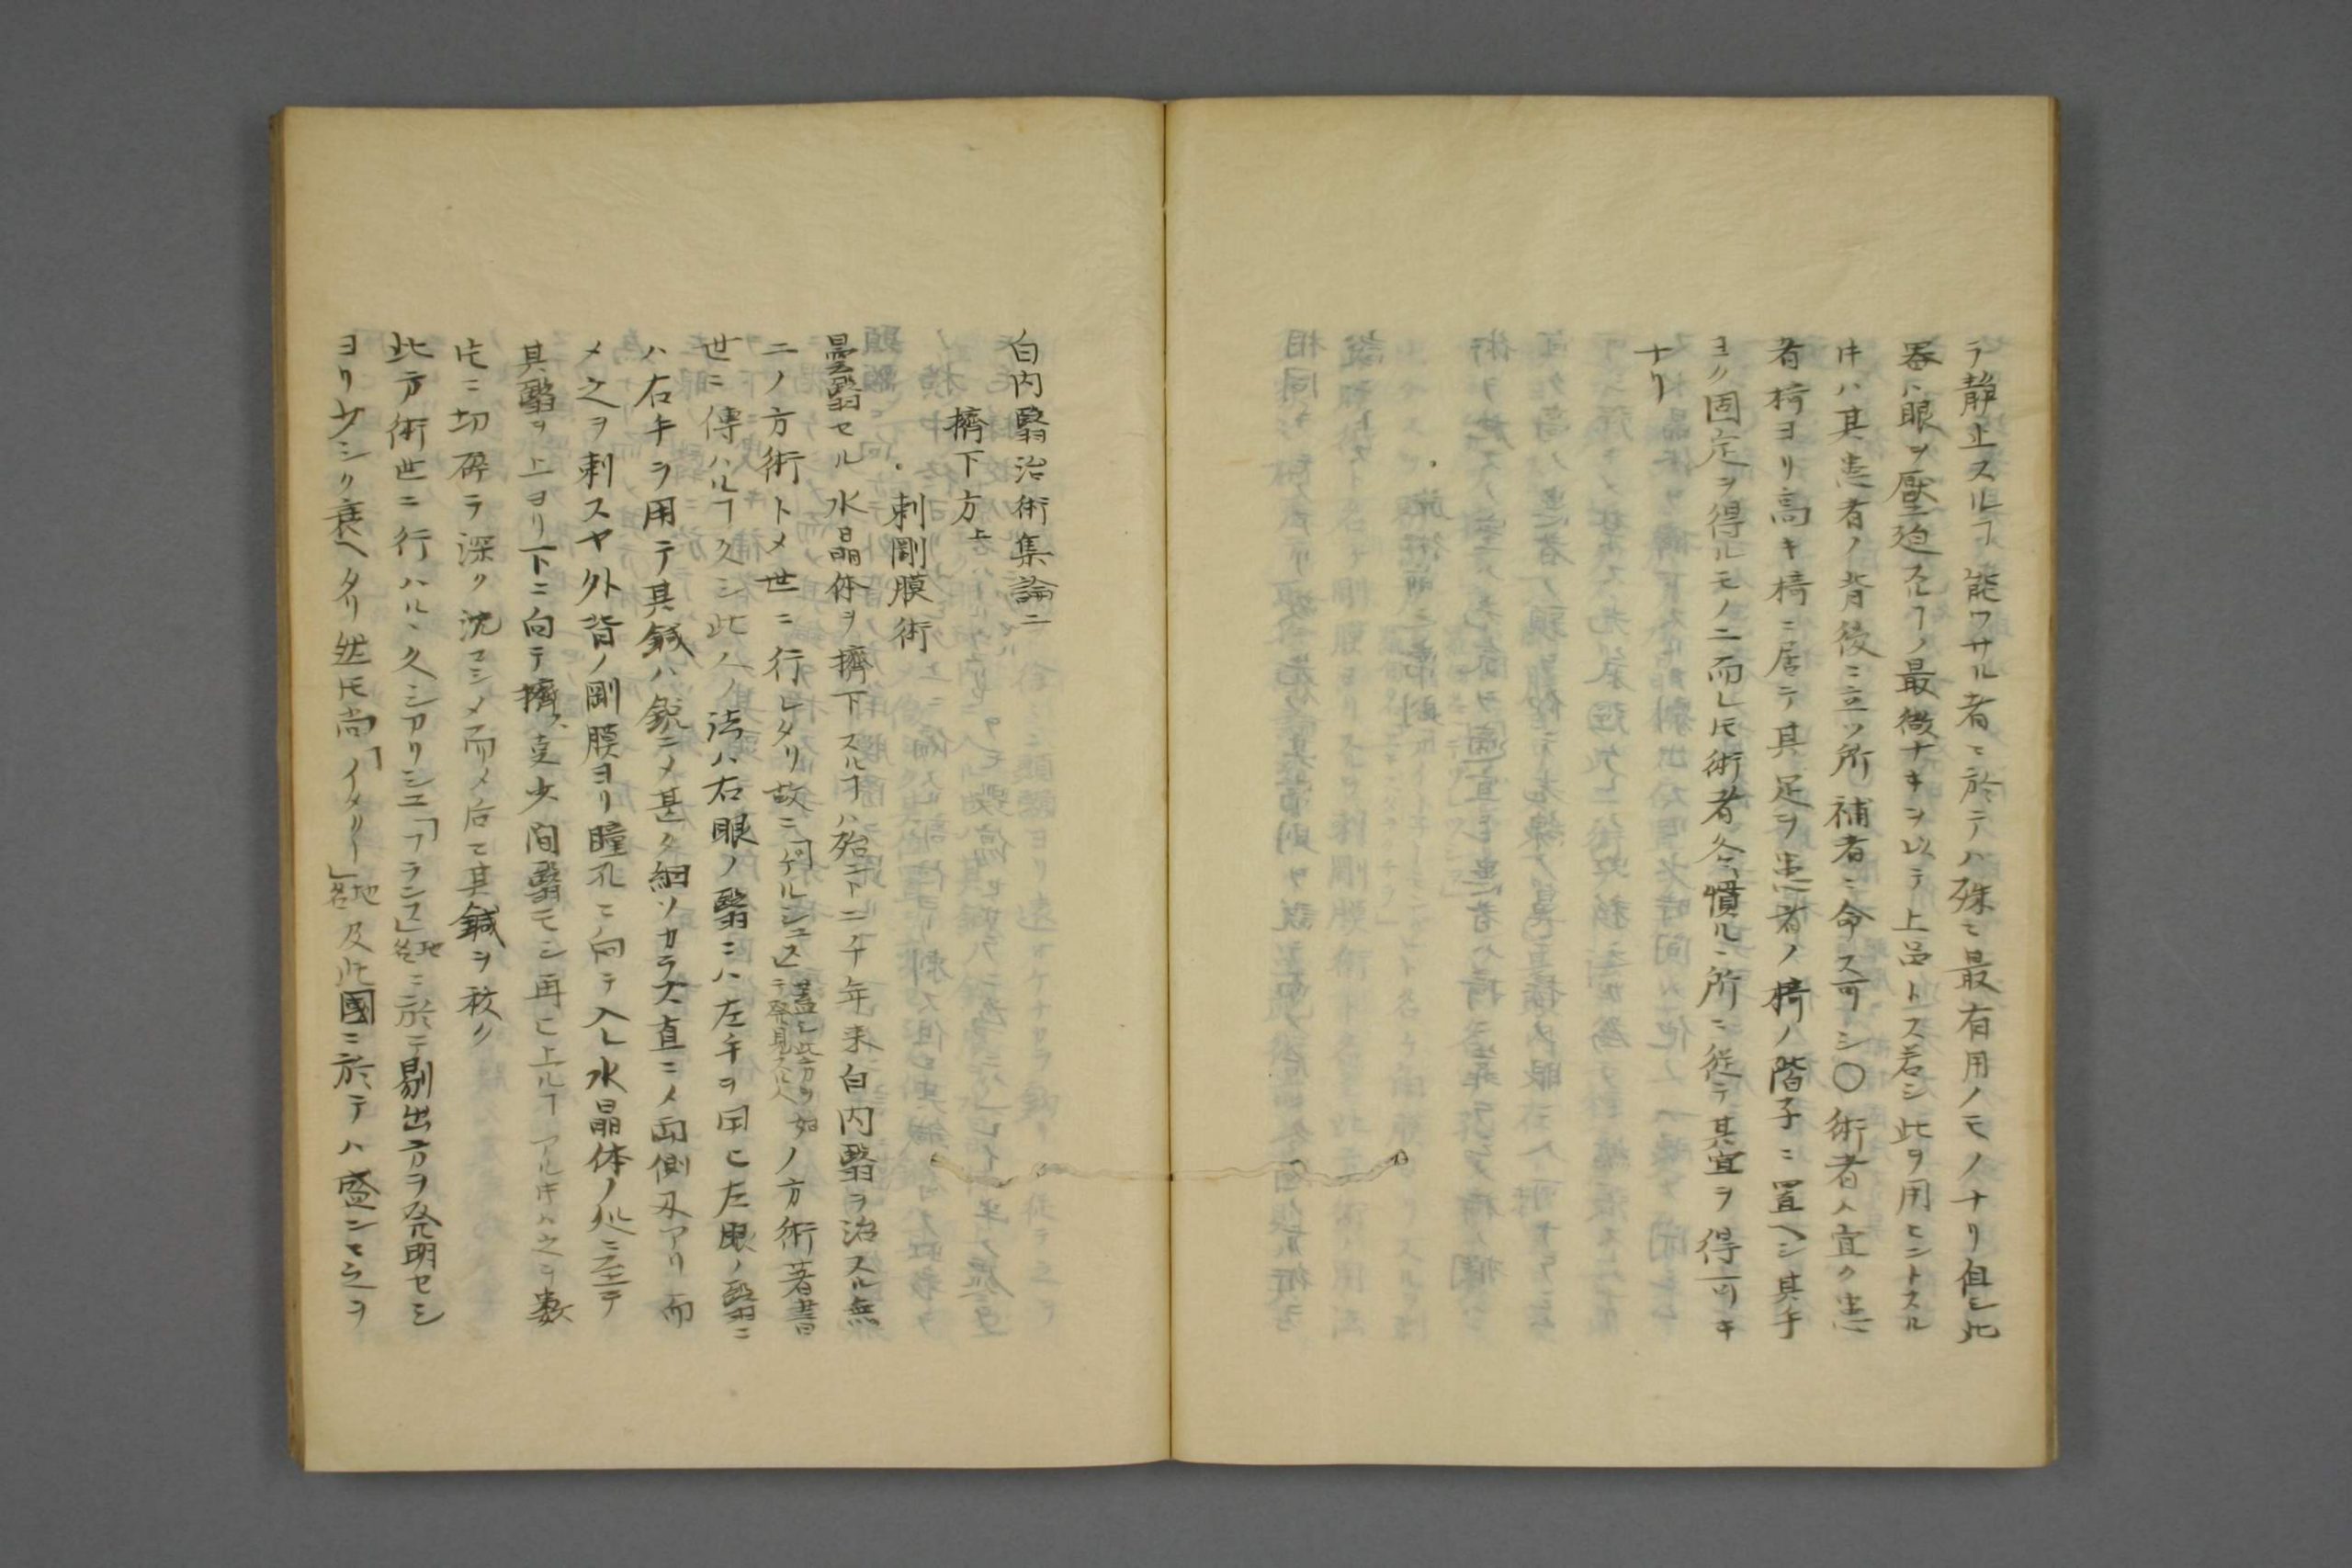 テ静止スルヿ能ワサル者ニ於テハ殊ニ最有用ノモノナリ但シ此
器ハ眼ヲ壓迫スルヿノ最微ナキヲ以テ上品トス若シ此ヲ用ヒントスル
片ハ其患者ノ背後ニ立ツ所ノ補者ニ命ス可シ〇術者ハ宜ク患
者椅ヨリ高キ椅ニ居テ其足ヲ患者ノ椅ノ階子ニ置ヘシ其手
ヨク固定ヲ得ルモノニ而レ𪜈術者各慣ルヽ所ニ従テ其宜ヲ得可キ
ナリ
白内翳治術集論二
擠下方上
刺剛膜術
曇翳セル水晶体ヲ擠下スル方ハ殆ト二千年来白内翳ヲ治スル無
二ノ方術トメ世ニ行レタリ故ニ「ゲルシュス」蓋シ此方ヲ始テ発見スル人ノ方術著書
世ニ傳ハルヿ久シ此人ノ法ハ右眼ノ翳ニハ左手ヲ用ヒ左眼ノ翳ニ
ハ右手ヲ用テ其鍼ハ鋭ニメ甚タ細ソカラス直ニメ両側刃アリ而
メ之ヲ刺スヤ外眥ノ剛膜ヨリ瞳孔ニ向テ入レ水晶体ノ処ニ至テ
其翳ヲ上ヨリ下ニ向テ擠ス更少間翳モシ再ヒ上ルヿアル片ハ之ヲ数
片ニ切碎テ深ク沈マシメ而メ后ニ其鍼ヲ抜ク
此方術世ニ行ハルヽ久シカリシエ「フランス」地名ニ於テ剔出方ヲ発明セシ
ヨリ少シク衰ヘタリ然𪜈尚「イタリー」地名及此國ニ於テハ盛ンニ之ヲ